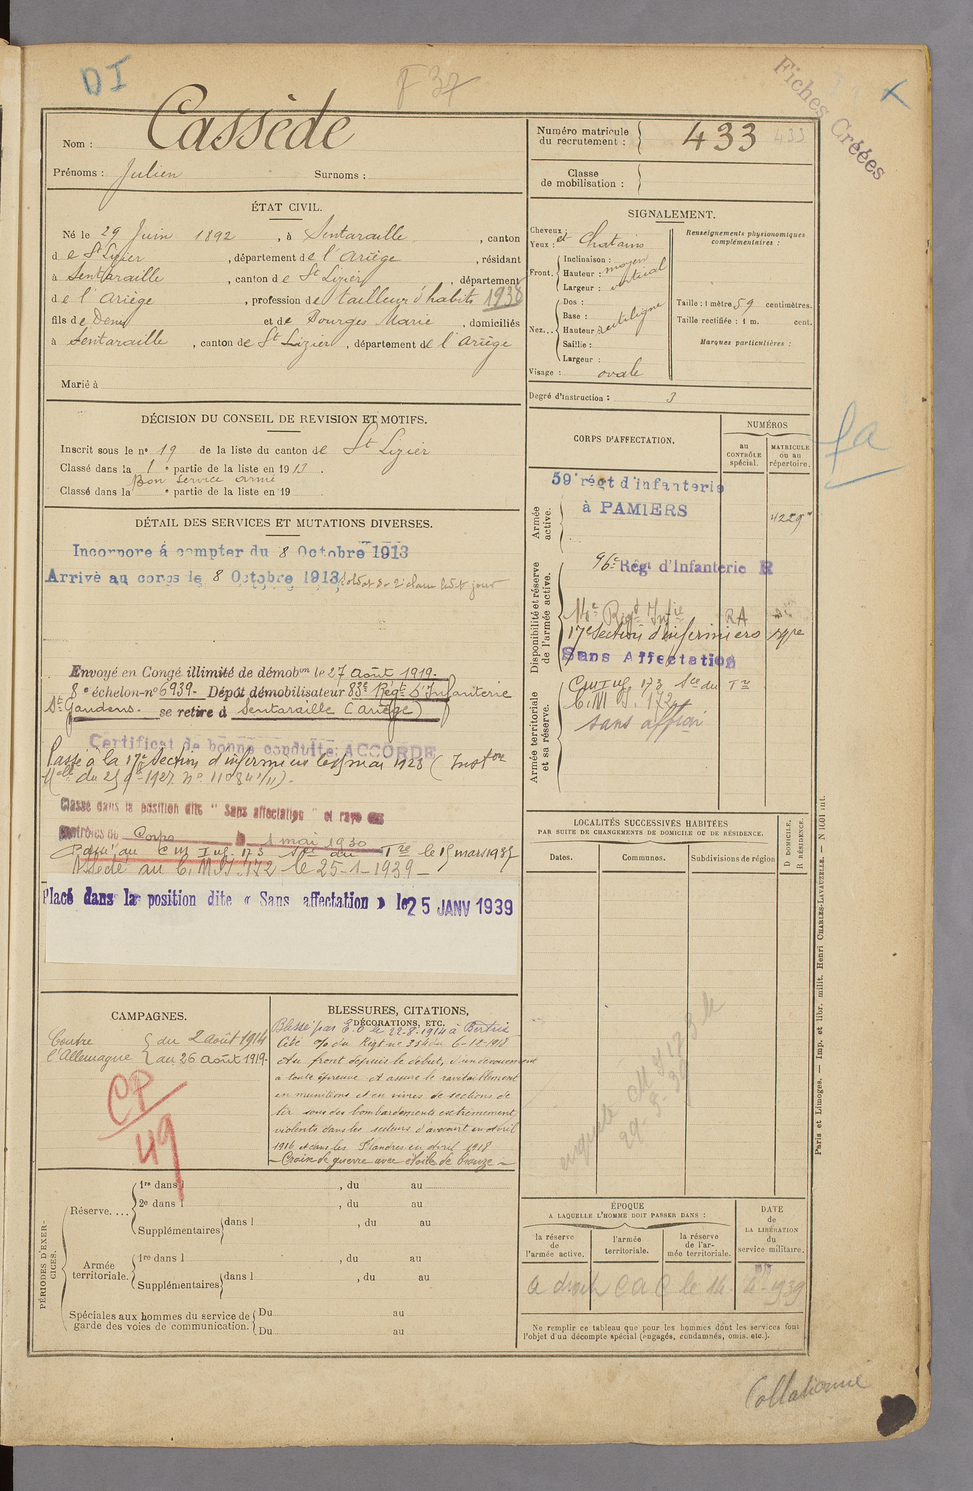 DI
F 37
Fiches Créées
Nom : Cassède
Prénoms : Julien Surnoms :
Numéro matricule
du recrutement : 433 433
Classe
de mobilisation :
ÉTAT CIVIL.
Né le 29 Juin 1892, à Sentaraille, canton
d e St Lizier, département de l'Ariège, résidant
à Sentaraille, canton de St Lizier, département
de l'Ariège, profession de tailleur d'habits 1938
fils de Denis et de Bourges Marie, domiciliés
à Sentaraille, canton de St Lizier, département de l'Ariège
Marié à
SIGNALEMENT.
Cheveux :
Yeux : et Chatains
Front. Inclinaison : moyen
Hauteur :
Largeur : vertical
Nez... Dos : rectiligne
Base :
Hauteur :
Saillie :
Largeur :
Visage : ovale
Renseignements physionomiques
complémentaires :
Taille : 1 mètre 59 centimètres.
Taille rectifiée : 1 m. cent.
Marques particulières :
Degré d'instruction : 3
DÉCISION DU CONSEIL DE REVISION ET MOTIFS.
Inscrit sous le n° 19 de la liste du canton de St Lizier
Classé dans la 1e partie de la liste en 1913.
Bon service armé
Classé dans la e partie de la liste en 19
DÉTAIL DES SERVICES ET MUTATIONS DIVERSES.
Incorporé à compter du 8 Octobre 1913
Arrivé au corps le 8 Octobre 1913 Soldat de 2e classe ledit jour
Envoyé en Congé illimité de démobon le 27 août 1919.
8e échelon - n° 6939 - Dépôt démobilisateur 83e Régt d'Infanterie
St Gaudens. se retire à Sentaraille (Ariège)
Certificat de bonne conduite ACCORDÉ
Passé à la 17e Section d'infirmiers le 1er mai 1928 (Inston
Mlle du 25 9bre 1927 n°
Classé dans la position dite " Sans affectation " et rayé des
contrôles du Corps le 1 mai 1930
Passé au C M Inf. 173 Sce du Tre le 15 mars 1937
Affecté au C. M. I. 172 le 25-1-1939
Placé dans la position dite « Sans affectation » le 25 JANV 1939
CORPS D'AFFECTATION.
NUMÉROS
au
CONTRÔLE
spécial.
MATRICULE
ou au
répertoire.
fa
Armée
active.
59e régt d'infanterie
à PAMIERS
4229
Disponibilité et réserve
de l'armée active.
96e Régt d'Infanterie R
14e Regt Infie RA
17e Section d'infirmiers
Sans Affectation
Armée territoriale
et sa réserve.
Cm Inf. 173 Sce du Tre
C. M I. 172
sans affon
LOCALITÉS SUCCESSIVES HABITÉES
PAR SUITE DE CHANGEMENTS DE DOMICILE OU DE RÉSIDENCE.
Dates. Communes. Subdivisions de région
D DOMICILE.
R RÉSIDENCE.
CAMPAGNES.
Contre du 2 août 1914
l'Allemagne au 26 août 1919
CP
49
BLESSURES, CITATIONS,
DÉCORATIONS, ETC.
Blessé par E. O le 22-8-1914 à Bertrix
Cité O/ du Régt n° 354 du 6-12-1918
Au front depuis le début, d'un dévouement
à toute épreuve A assuré le ravitaillement
en munitions et en vivres de sections de
tir sous des bombardements extrêmement
violents dans les secteurs d'avocourt en Avril
1916 et dans les Flandres en Avril 1918
Croix de guerre avec étoile de bronze
PÉRIODES D'EXERCICES.
Réserve.... 1re dans l , du au
2e dans l , du au
Supplémentaires dans l , du au
Armée
territoriale. 1re dans l , du au
Supplémentaires dans l , du au
Spéciales aux hommes du service de
garde des voies de communication. Du au
Du au
ÉPOQUE
A LAQUELLE L'HOMME DOIT PASSER DANS :
la réserve
de
l'armée active.
l'armée
territoriale.
la réserve
de l'ar-
mée territoriale.
DATE
de
LA LIBÉRATION
du
service militaire.
a droit C a C le 14 4-1939
Ne remplir ce tableau que pour les hommes dont les services font
l'objet d'un décompte spécial (engagés, condamnés, omis, etc.).
Paris et Limoges. — Imp. et libr. milit. Henri CHARLES-LAVAUZELLE.
Collationné